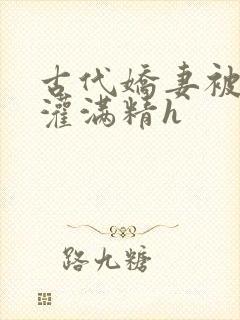 古代嬌妻被
灌满精h
路九糖